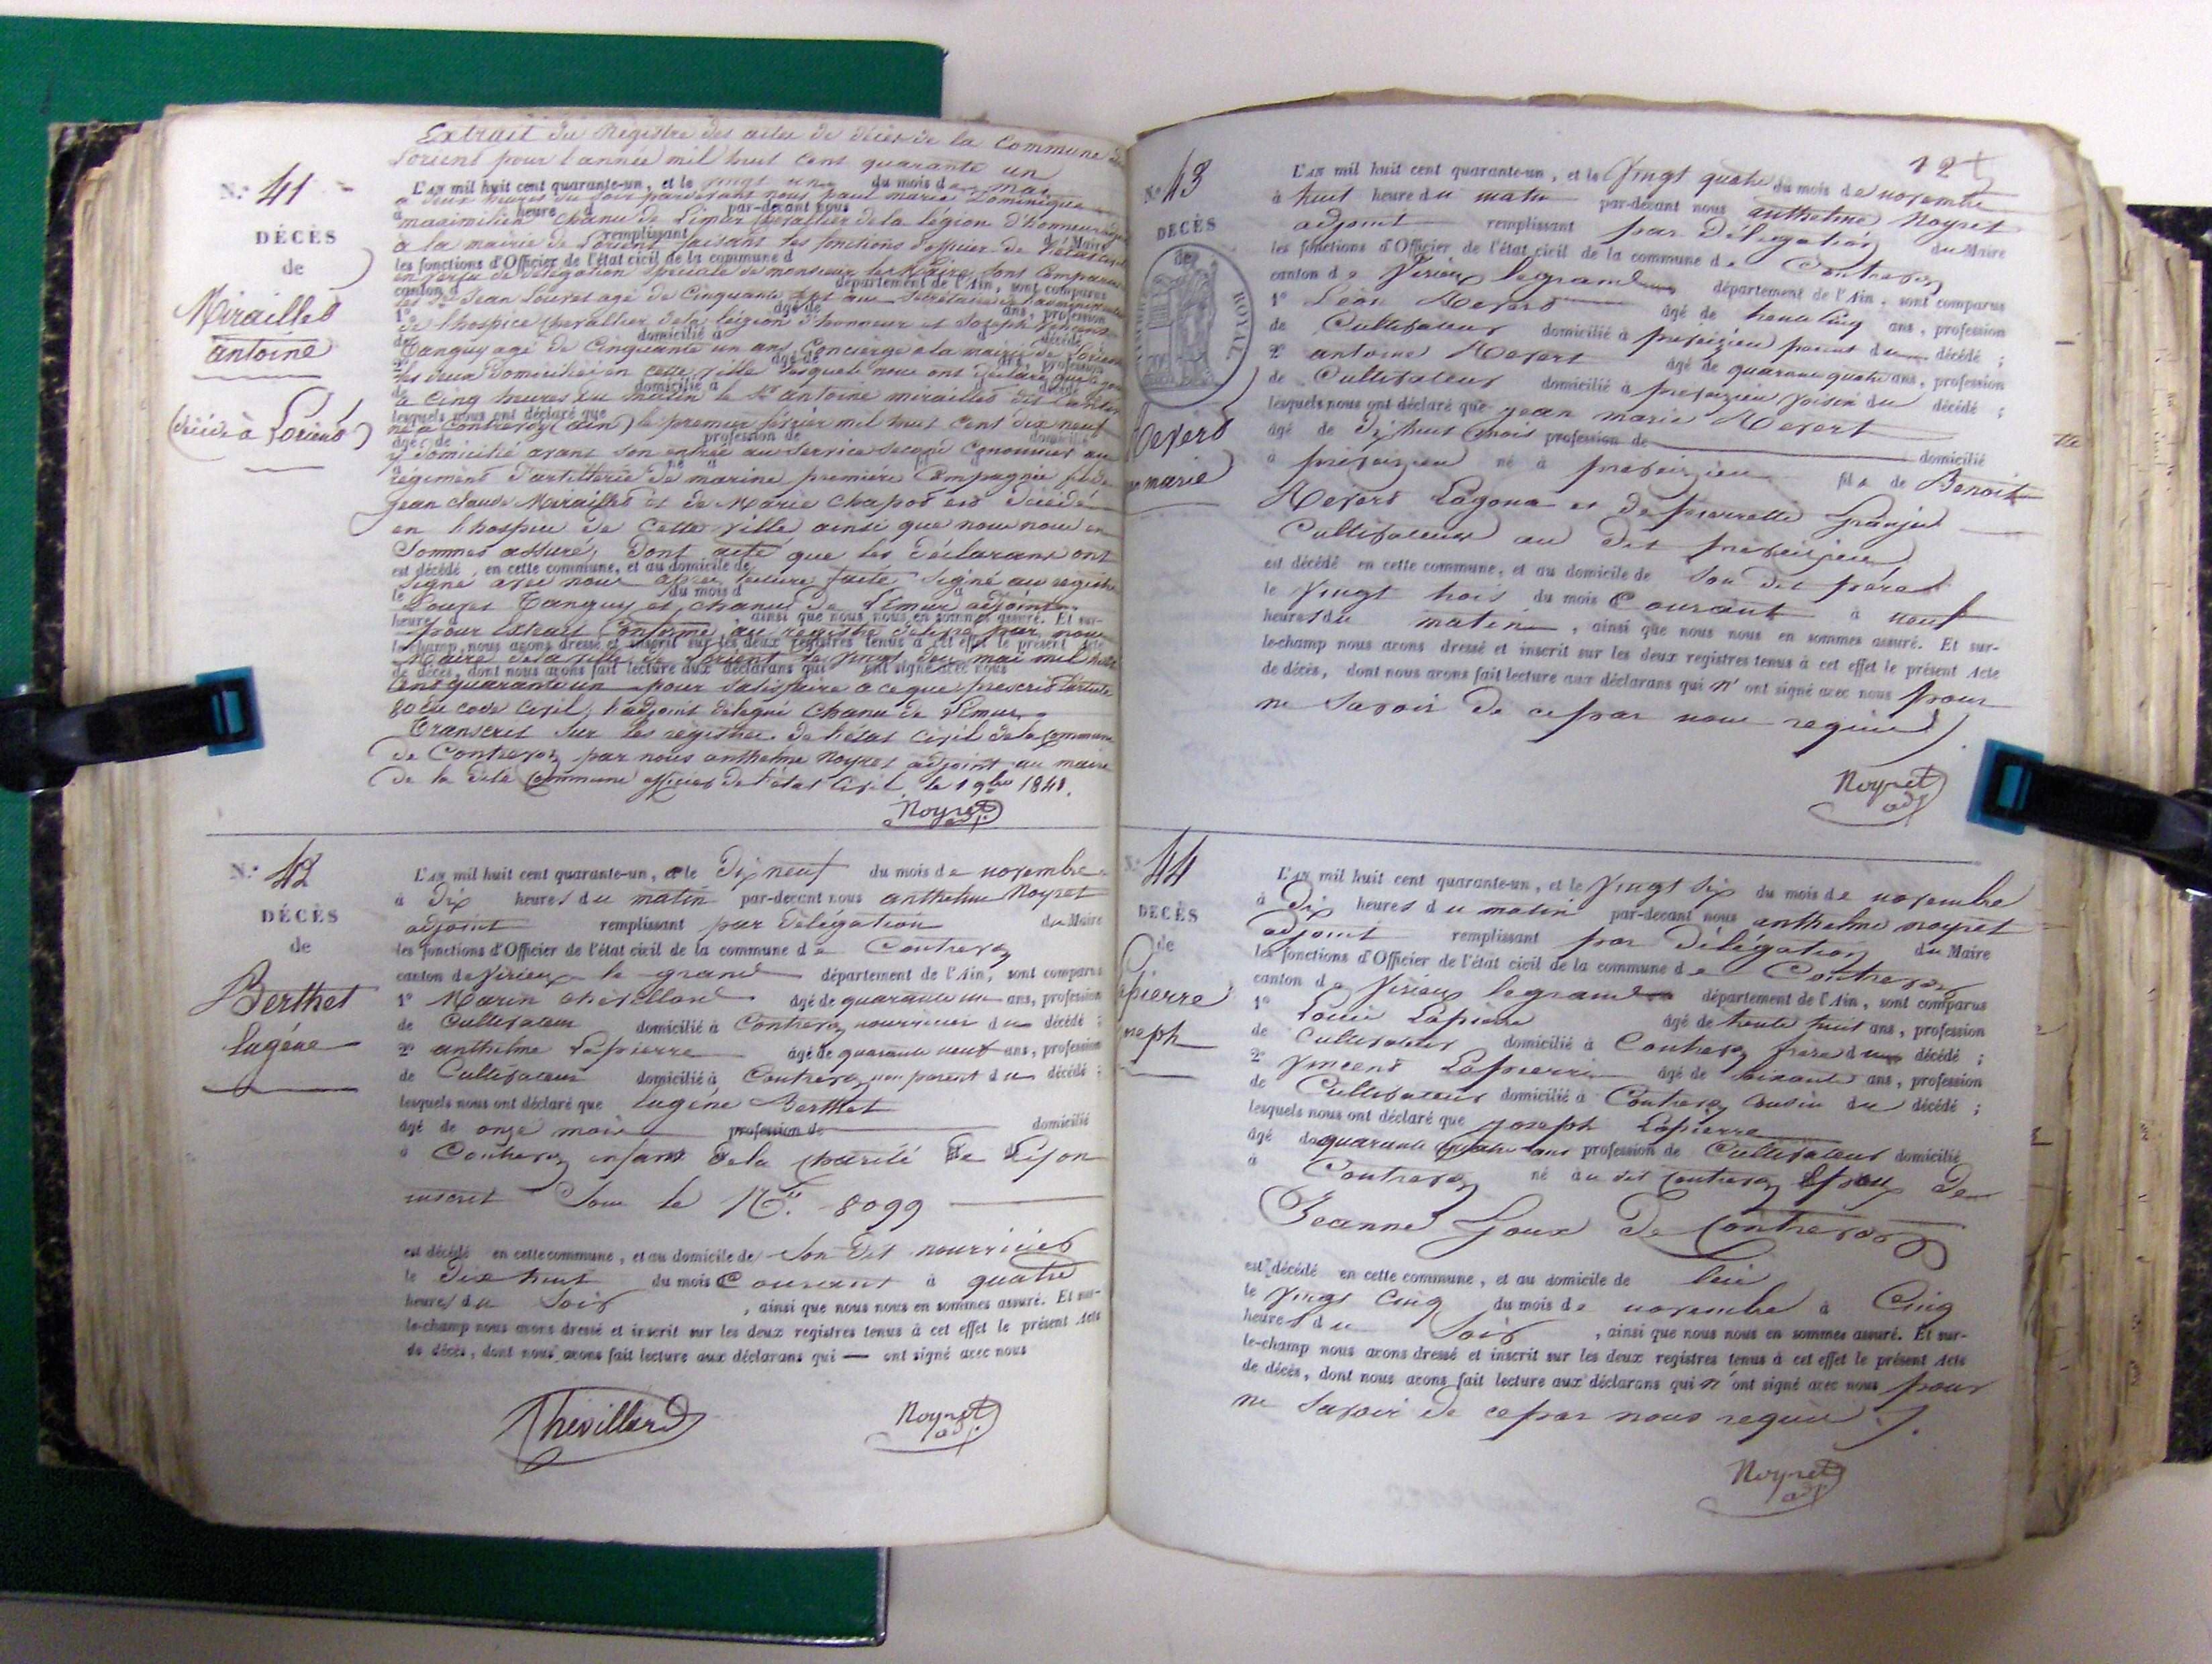 Extrait du Registre des actes de décès de la Commune de
Lorient pour l'année mil huit cent quarante un
N.º 41
DÉCÈS
de
Miraillet
antoine
(décédé à Lorient)
L'AN mil huit cent quarante-un, et le vingt un du mois de mai
à deux heures du soir pardevant nous paul marie Dominique
heure par-devant nous
maximilien Chanu de Limur chevallier de la légion d'honneur
remplissant du Maire
a la mairie de Lorient faisant les fonctions d'officier de l'état civil
les fonctions d'Officier de l'état civil de la commune d
en vertu de délégation spéciale de monsieur le Maire, sont comparus
canton d département de l'Ain, sont comparus
Jean Louret agé de Cinquante sept ans Secrétaire
1º âgé de ans, profession
de l'hospice chevallier de la légion d'honneur et Joseph
de domicilié à décédé
Tanguy agé de Cinquante un ans, Concierge à la mairie de Lorient
2º âgé de ans, profession
les deux domiciliés en cette ville lesquels nous ont déclaré que
de domicilié à décédé
a cinq heures du matin le Sr antoine miraillet
lesquels nous ont déclaré que
né à Contrevoz (ain) le premier février mil huit cent dix neuf
âgé de profession de domicilié
y domicilié avant son entrée au service second canonnier au
à né à fil de
régiment d'artillerie de marine première Compagnie fils de
Jean claude Miraillet et de Marie Chapot est décédé
en l'hospice de cette ville ainsi que nous nous en
Sommes assuré, Dont acte que les déclarans ont
est décédé en cette commune, et au domicile de
signé avec nous après lecture faite signé au registre
le du mois d
Louret Tanguy et chanu de Limur adjoint
heure , ainsi que nous nous en sommes assuré. Et sur-
pour Extrait Conforme au registre délivré par nous
le-champ nous avons dressé et inscrit sur les deux registres tenus à cet effet le présent Acte
Maire de la ville de Lorient le vingt deux mai mil huit
de décès, dont nous avons fait lecture aux déclarans qui ont signé avec nous
Cent quarante un pour satisfaire a ce que prescrit l'article
80 du code civil, l'adjoint délégué Chanu de Limur
Transcrit sur les registres de l'état civil de la Commune
de Contrevoz par nous anthelme Noyret adjoint au maire
de la dite Commune officier de l'état civil, le 1 9bre 1841.
Noyret
adj.
N.º 42
DÉCÈS
de
Berthet
Eugéne
L'AN mil huit cent quarante-un, et le Dix neuf du mois de novembre
à Dix heures du matin par-devant nous anthelme Noyret
adjoint remplissant par délégation du Maire
les fonctions d'Officier de l'état civil de la commune de Contrevoz
canton de Virieux le grand département de l'Ain, sont comparus
1º Marin chevillard âgé de quarante un ans, profession
de Cultivateur domicilié à Contrevoz nourricier du décédé ;
2º anthelme Lapierre âgé de quarante neuf ans, profession
de Cultivateur domicilié à Contrevoz non parent du décédé ;
lesquels nous ont déclaré que Eugéne Berthet
âgé de onze mois profession de domicilié
à Contrevoz enfant de la charité de Lyon
inscrit sous le Nº. 8099
est décédé en cette commune, et au domicile de son dit nourricier
le Dix huit du mois Courant à quatre
heures du Soir , ainsi que nous nous en sommes assuré. Et sur-
le-champ nous avons dressé et inscrit sur les deux registres tenus à cet effet le présent Acte
de décès, dont nous avons fait lecture aux déclarans qui — ont signé avec nous
Chevillard
Noyret
adj.
121
N.º 43
DÉCÈS
de
ROYAL
Revert
marie
L'AN mil huit cent quarante-un, et le Vingt quatre du mois de novembre
à huit heure du matin par-devant nous anthelme Noyret
adjoint remplissant par Délégation du Maire
les fonctions d'Officier de l'état civil de la commune de Contrevoz
canton de Virieux legrand département de l'Ain, sont comparus
1º Léon Revert âgé de trente cinq ans, profession
de Cultivateur domicilié à preveizieu parent du décédé ;
2º antoine Revert âgé de quarante quatre ans, profession
de Cultivateur domicilié à preveizieu voisin du décédé ;
lesquels nous ont déclaré que jean marie Revert
âgé de dix huit mois profession de domicilié
à preveizieu né à preveizieu fils de Benoit
Revert Lagona et de pierrette Granju
Cultivateurs au dit preveizieu
est décédé en cette commune, et au domicile de son dit père
le Vingt trois du mois Courant à neuf
heures du matin , ainsi que nous nous en sommes assuré. Et sur-
le-champ nous avons dressé et inscrit sur les deux registres tenus à cet effet le présent Acte
de décès, dont nous avons fait lecture aux déclarans qui n'ont signé avec nous pour
ne savoir de ce par nous requis
Noyret
adj
N.º 44
DÉCÈS
de
Lapierre
joseph
L'AN mil huit cent quarante-un, et le Vingt six du mois de novembre
à Dix heures du matin par-devant nous anthelme noyret
adjoint remplissant par délégation du Maire
les fonctions d'Officier de l'état civil de la commune de Contrevoz
canton de Virieux legrand département de l'Ain, sont comparus
1º Louis Lapierre âgé de trente huit ans, profession
de Cultivateur domicilié à Contrevoz frère du décédé ;
2º Vincent Lapierre âgé de soixante ans, profession
de Cultivateur domicilié à Contrevoz cousin du décédé ;
lesquels nous ont déclaré que joseph Lapierre
âgé de quarante quatre ans profession de Cultivateur domicilié
à Contrevoz né au dit contrevoz Epoux de
Jeanne Goux de Contrevoz
est décédé en cette commune, et au domicile de lui
le Vingt Cinq du mois de novembre à Cinq
heures du Soir , ainsi que nous nous en sommes assuré. Et sur-
le-champ nous avons dressé et inscrit sur les deux registres tenus à cet effet le présent Acte
de décès, dont nous avons fait lecture aux déclarans qui n'ont signé avec nous pour
ne savoir de ce par nous requis
Noyret
adj